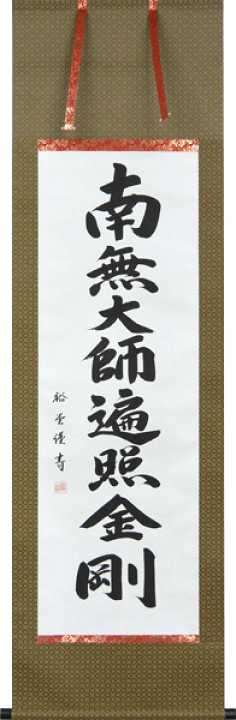 南無大師遍照金剛
裕雲謹書